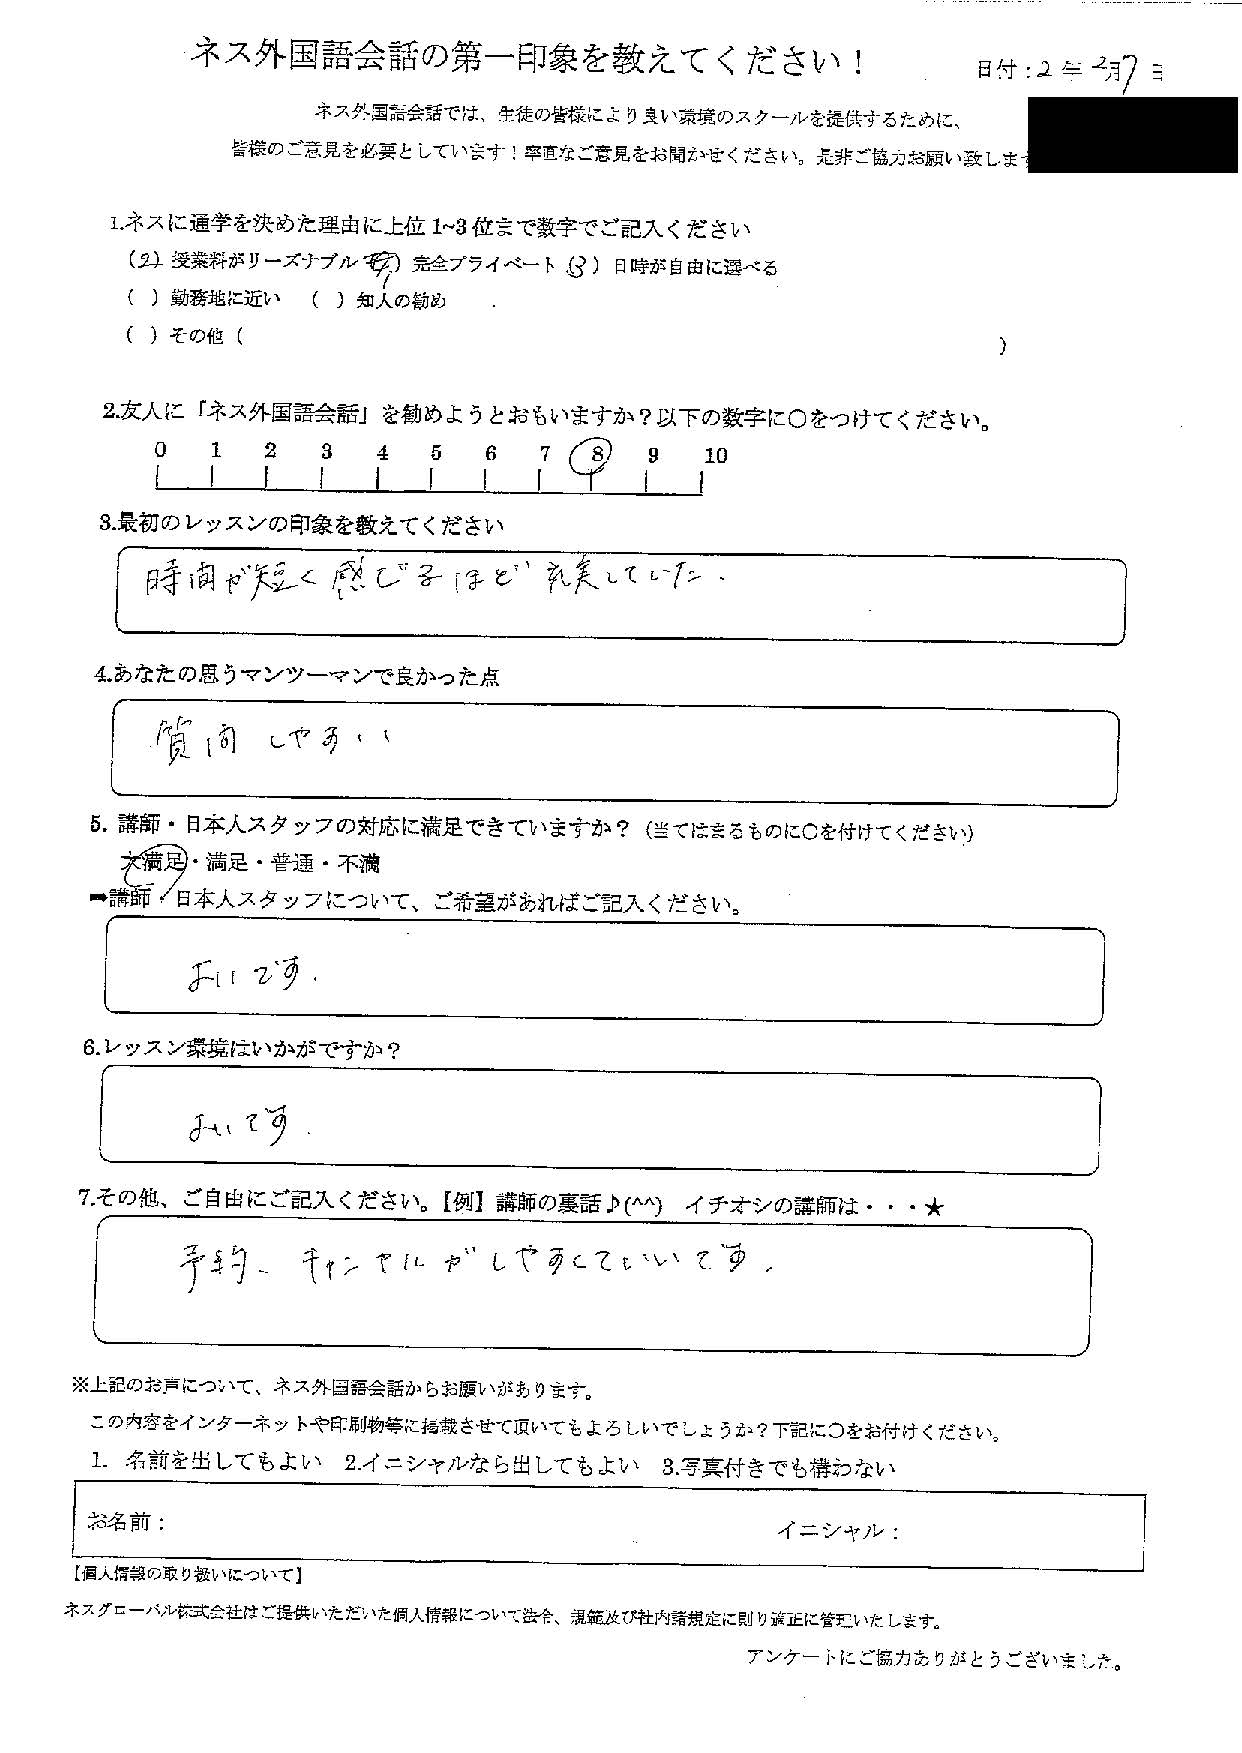 ネス外国語会話の第一印象を教えてください！
日付：2年2月7日
ネス外国語会話では、生徒の皆様により良い環境のスクールを提供するために、
皆様のご意見を必要としています！率直なご意見をお聞かせください。是非ご協力お願い致します
1.ネスに通学を決めた理由に上位1~3位まで数字でご記入ください
（2）授業料がリーズナブル （ ）完全プライベート （3）日時が自由に選べる
（ ）勤務地に近い （ ）知人の勧め
（ ）その他（ ）
2.友人に「ネス外国語会話」を勧めようとおもいますか？以下の数字に〇をつけてください。
0 1 2 3 4 5 6 7 8 9 10
3.最初のレッスンの印象を教えてください
時間が短く感じるほど充実していた.
4.あなたの思うマンツーマンで良かった点
質問しやすい
5. 講師・日本人スタッフの対応に満足できていますか？（当てはまるものに〇を付けてください）
大満足・満足・普通・不満
➡講師・日本人スタッフについて、ご希望があればご記入ください。
よいです.
6.レッスン環境はいかがですか？
よいです.
7.その他、ご自由にご記入ください。【例】講師の裏話♪(^^) イチオシの講師は・・・★
予約、キャンセルがしやすくていいです.
※上記のお声について、ネス外国語会話からお願いがあります。
この内容をインターネットや印刷物等に掲載させて頂いてもよろしいでしょうか？下記に〇をお付けください。
1. 名前を出してもよい 2.イニシャルなら出してもよい 3.写真付きでも構わない
お名前： イニシャル：
【個人情報の取り扱いについて】
ネスグローバル株式会社はご提供いただいた個人情報について法令、規範及び社内諸規定に則り適正に管理いたします。
アンケートにご協力ありがとうございました。